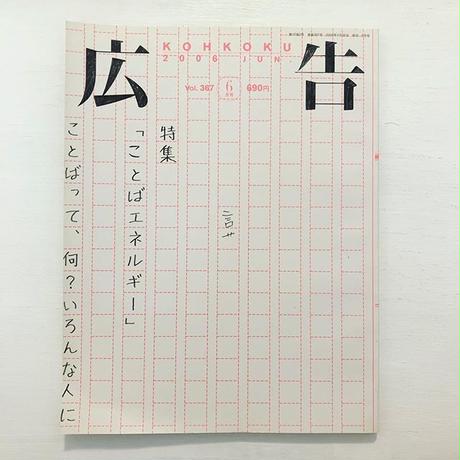 広告
KOHKOKU
2006 JUN.
Vol. 367
6
月号
690円
特集
「ことばエネルギー」
ことばって、何?いろんな人に